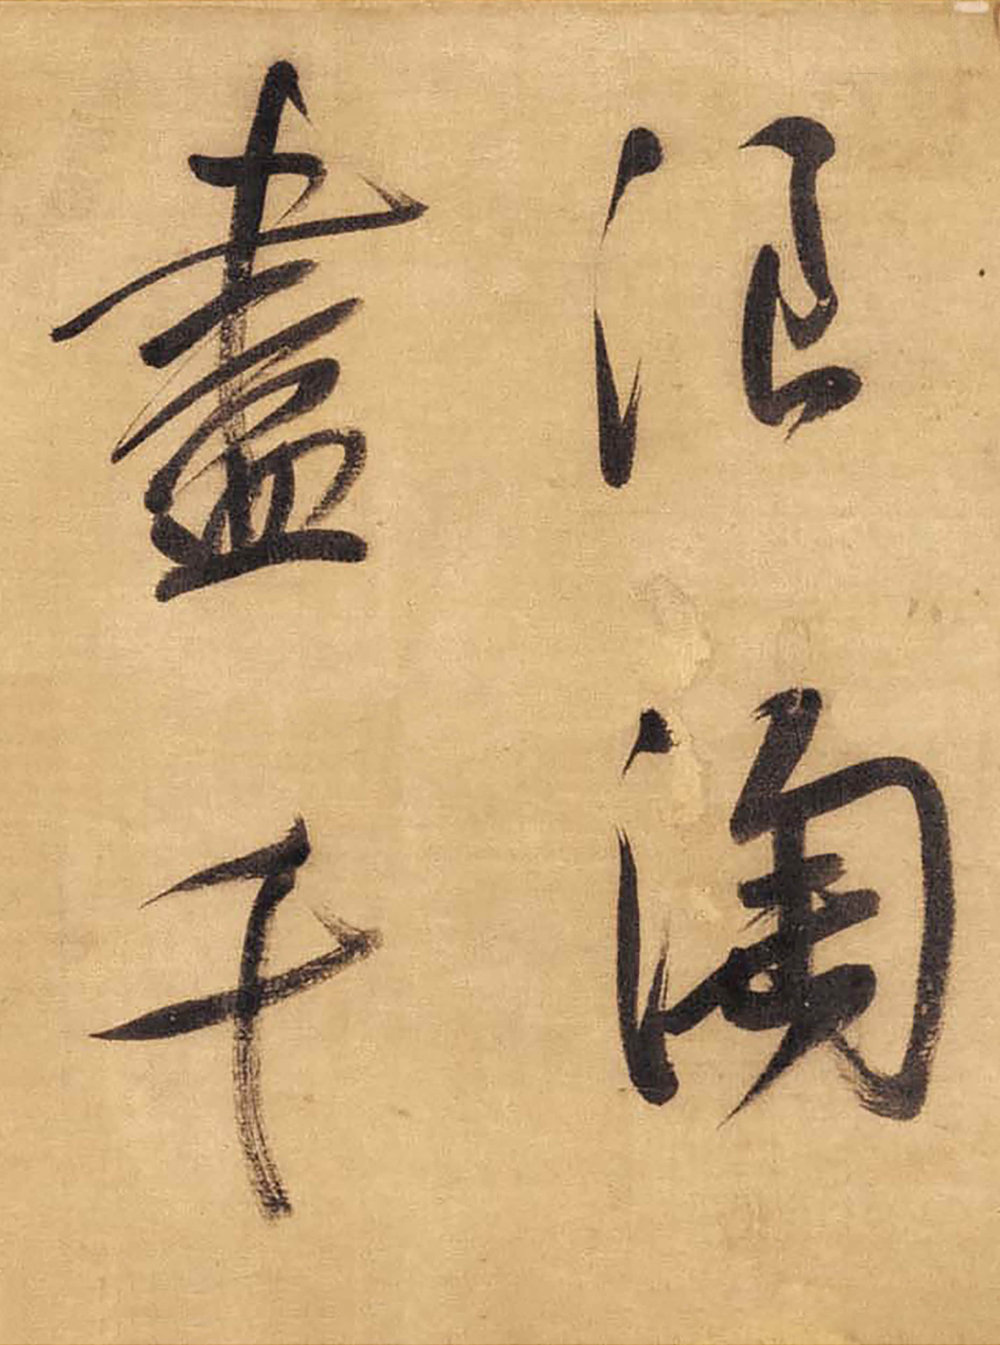 浪淘
盡千